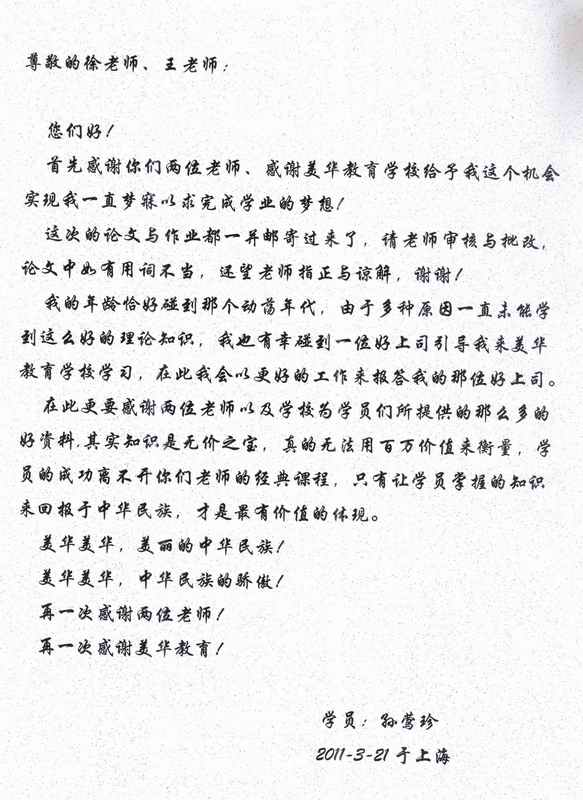 尊敬的徐老师、王老师：
您们好！
首先感谢你们两位老师、感谢美华教育学校给予我这个机会
实现我一直梦寐以求完成学业的梦想！
这次的论文与作业都一并邮寄过来了，请老师审核与批改，
论文中如有用词不当，还望老师指正与谅解，谢谢！
我的年龄恰好碰到那个动荡年代，由于多种原因一直未能学
到这么好的理论知识，我也有幸碰到一位好上司引导我来美华
教育学校学习，在此我会以更好的工作来报答我的那位好上司。
在此更要感谢两位老师以及学校为学员们所提供的那么多的
好资料.其实知识是无价之宝，真的无法用百万价值来衡量，学
员的成功离不开你们老师的经典课程，只有让学员掌握的知识
来回报于中华民族，才是最有价值的体现。
美华美华，美丽的中华民族！
美华美华，中华民族的骄傲！
再一次感谢两位老师！
再一次感谢美华教育！
学员：孙莺珍
2011-3-21 于上海